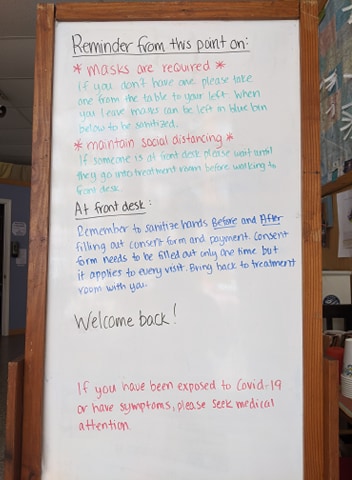 Reminder from this point on:
* masks are required *
if you don't have one please take
one from the table to your left. When
you leave masks can be left in blue bin
below to be sanitized.
* maintain social distancing *
If someone is at front desk please wait until
they go into treatment room before walking to
front desk.
At front desk:
Remember to sanitize hands Before and After
filling out consent form and payment. Consent
form needs to be filled out only one time but
it applies to every visit. Bring back to treatment
room with you.
Welcome back!
If you have been exposed to Covid-19
or have symptoms, please seek medical
attention.